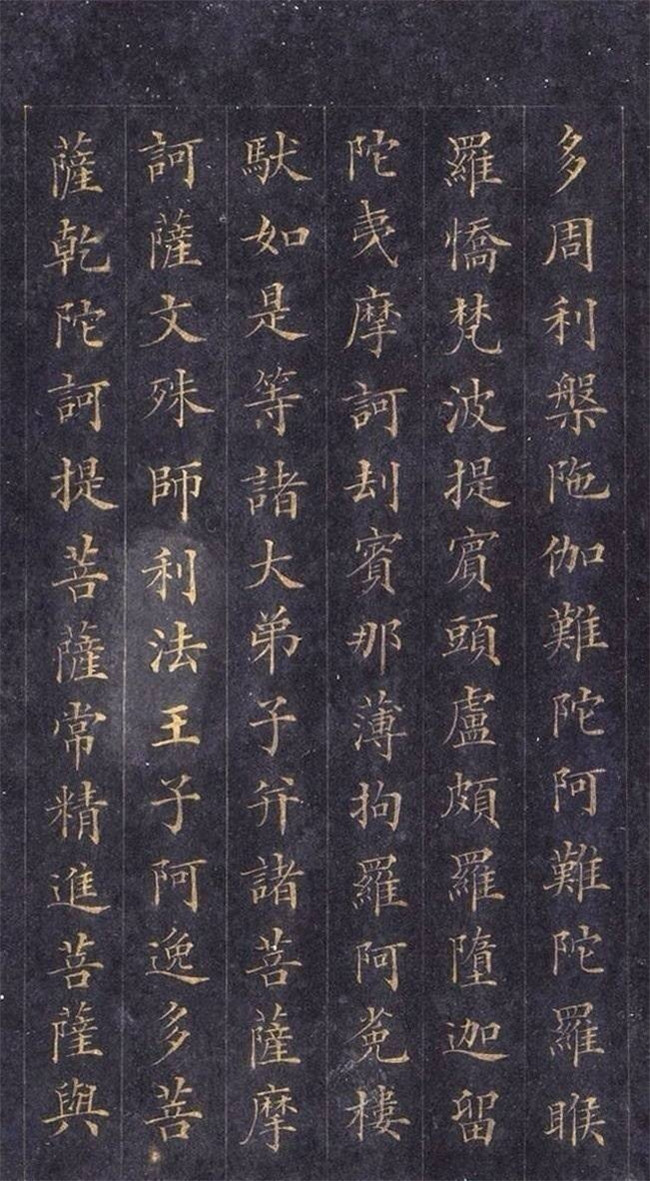 多周利槃陁伽難陀阿難陀羅睺
羅憍梵波提賔頭盧頗羅墮迦留
陀夷摩訶刦賓那薄拘羅阿㝹樓
䭾如是等諸大弟子并諸菩薩摩
訶薩文殊師利法王子阿逸多菩
薩乾陀訶提菩薩常精進菩薩與